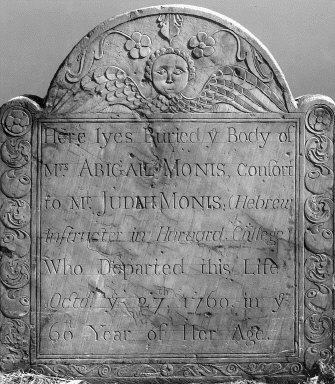 Here lyes Buried yͤ Body of
Mʳˢ ABIGAIL MONIS, Consort
to Mʳ JUDAH MONIS, (Hebrew
Instructer in Harvard College)
Who Departed this Life
Octoʳ yͤ 27ᵗʰ 1760, in yͤ
60 Year of Her Age.